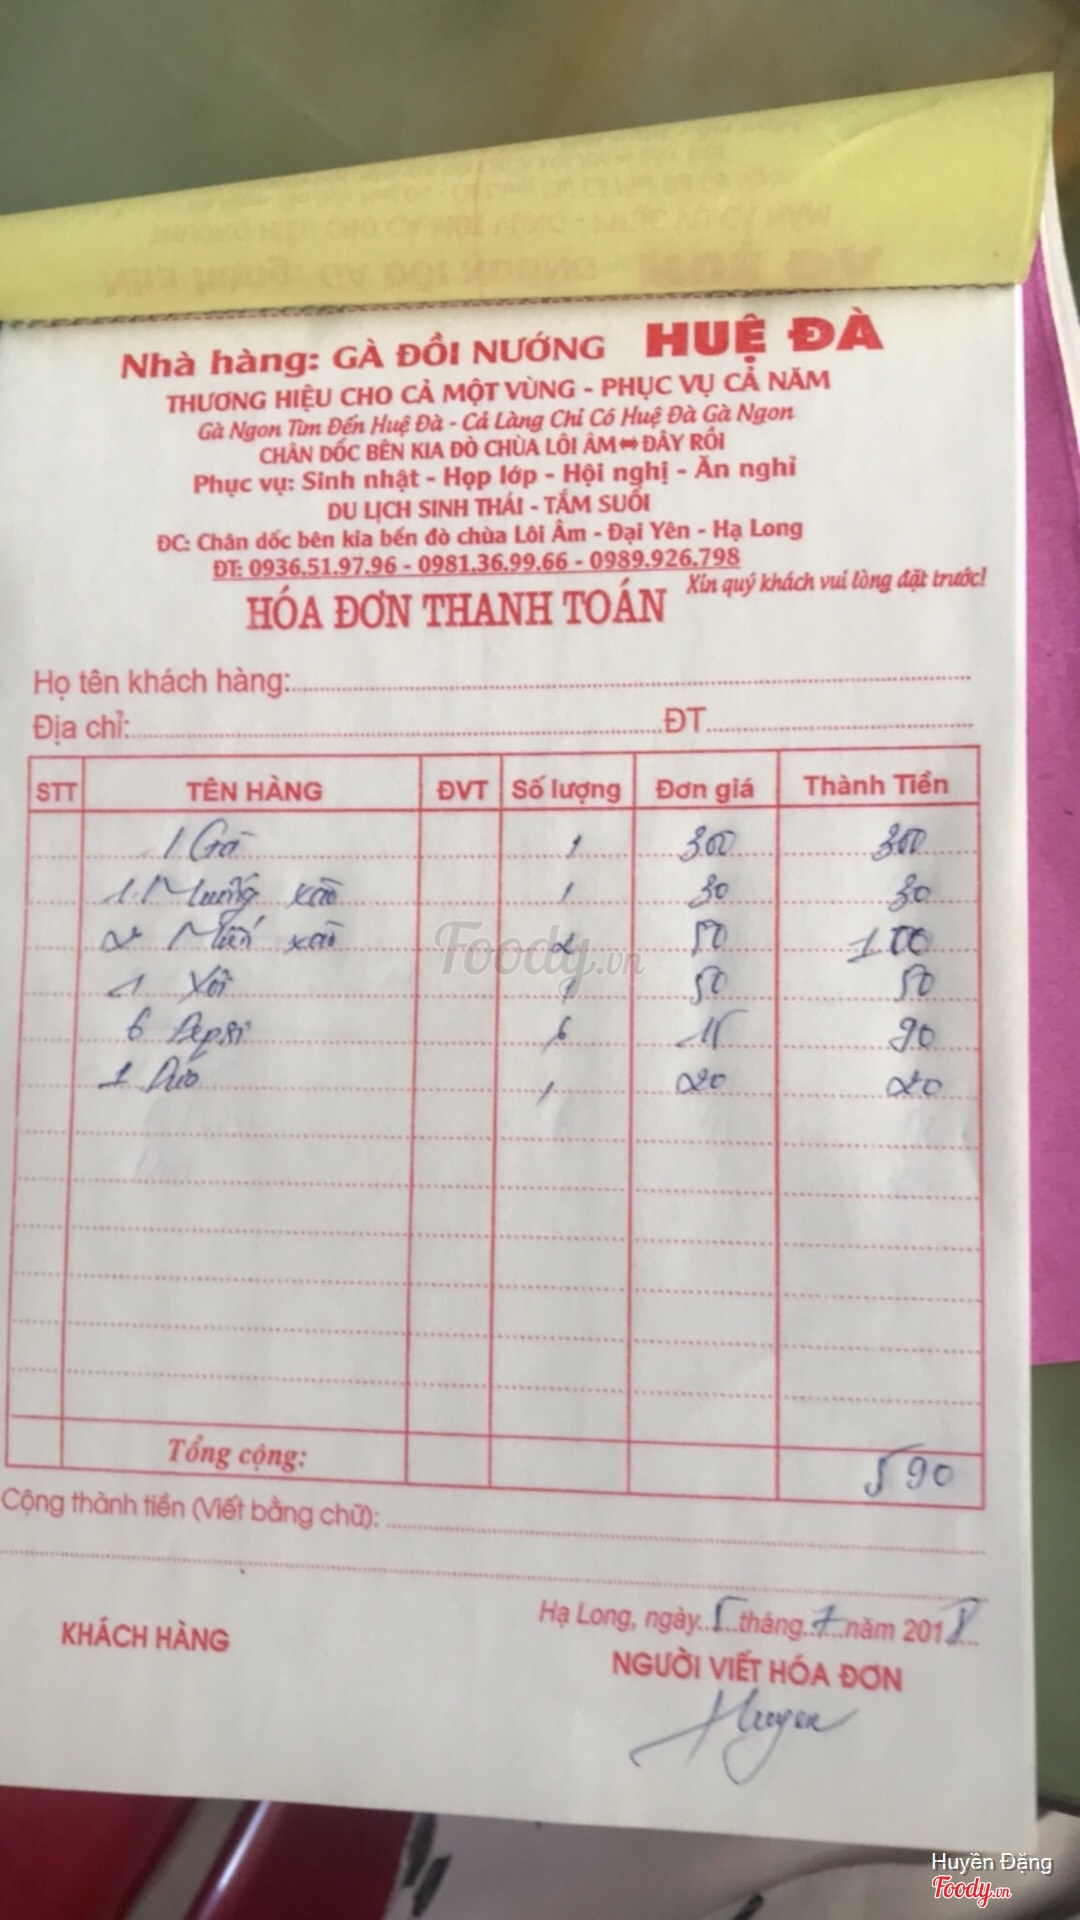 Nhà hàng: GÀ ĐỒI NƯỚNG HUỆ ĐÀ
THƯƠNG HIỆU CHO CẢ MỘT VÙNG - PHỤC VỤ CẢ NĂM
Gà Ngon Tìm Đến Huệ Đà - Cả Làng Chỉ Có Huệ Đà Gà Ngon
CHÂN DỐC BÊN KIA ĐÒ CHÙA LÔI ÂM⇔ĐÂY RỒI
Phục vụ: Sinh nhật - Họp lớp - Hội nghị - Ăn nghỉ
DU LỊCH SINH THÁI - TẮM SUỐI
ĐC: Chân dốc bên kia bến đò chùa Lôi Âm - Đại Yên - Hạ Long
ĐT: 0936.51.97.96 - 0981.36.99.66 - 0989.926.798
Xin quý khách vui lòng đặt trước!
HÓA ĐƠN THANH TOÁN
Họ tên khách hàng:
Địa chỉ: ĐT
STT TÊN HÀNG ĐVT Số lượng Đơn giá Thành Tiền
1 Gà 1 300 300
1 Muống xào 1 30 30
2 Miến xào 2 50 100
1 Xôi 1 50 50
6 Pepsi 6 15 90
1 1 20 20
Tổng cộng: 590
Cộng thành tiền (Viết bằng chữ):
Hạ Long, ngày 5 tháng 7 năm 2018
KHÁCH HÀNG NGƯỜI VIẾT HÓA ĐƠN
Huyen
Foody.vn
Huyền Đặng
Foody.vn